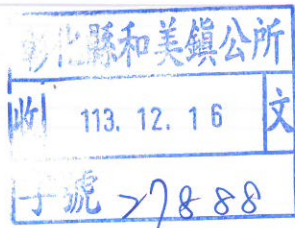 彰化縣和美鎮公所
收 113.12.16 文
字號 27888